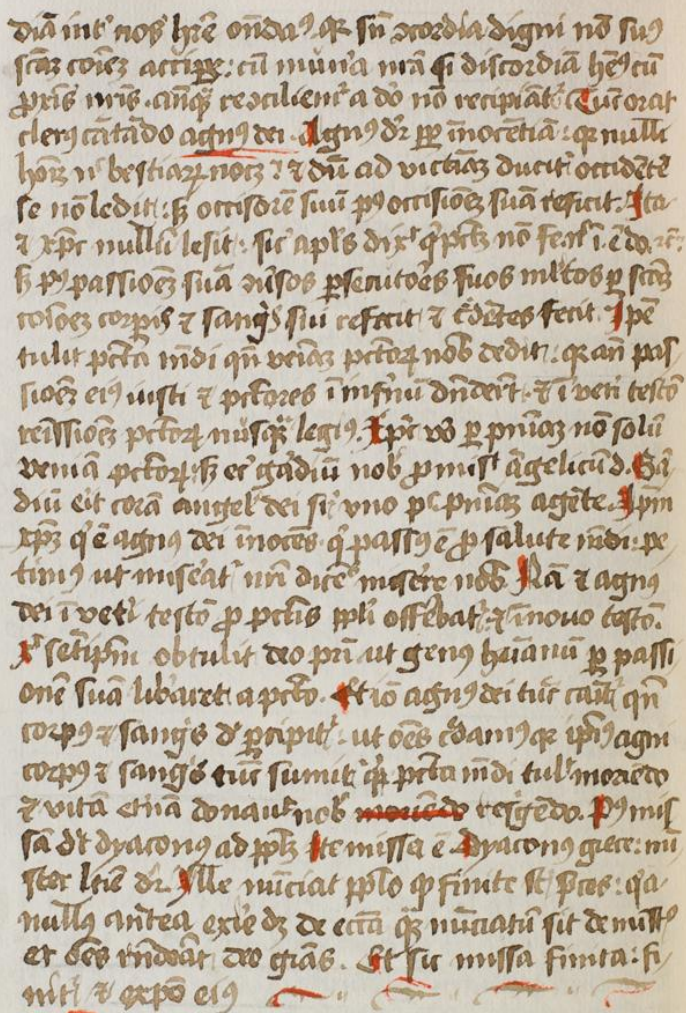 diā int' nos hr̄e ond'aꝰ. qꝛ sn̄ ↄcordia digni nō suꝰ
scāꝫ coīeꝫ accipꝑe: cū mun'a nr̄a si discordiā hēꝰ cū
ꝓxīs nr̄is. anq̄ꝫ recōcilient' a dō nō recipiāt'. Tūc orat
clerꝰ cātādo agnꝰ dei. Agnꝰ dr̄ ꝓp̄ īnocētiā: qꝛ nulli
hoīꝫ n̄ bestiaꝝ nocꝫ: ⁊ dū ad victīaꝫ ducit' occidētē
se nō ledit: sꝫ occisorē suū pꝰ occisiōeꝫ suā reficit. Ita
⁊ xp̄c nullū lesit: sic' apl̄s dix^t q̇ pctꝫ nō fec^t ī. ē do. ⁊c̄.
h̄ pꝰ passiōeꝫ suā ↄu'sos ꝑsecutōes suos ml'tos ꝑ scāꝫ
coīoeꝫ corpis ⁊ sang^s sui refecit ⁊ c'dētes fecit. Ipē
tulit pctā mūdi qn̄ veniaꝫ pctoꝝ nob' dedit: qꝛ an̄ pas
sioēꝫ eiꝰ iusti ⁊ pctores ī infnū d'nder̄t. ⁊ ī vet'i testō
reīssioēꝫ pctoꝝ nusq̄ꝫ legiꝰ. Xp̄c v'o ꝑ pn̄iaꝫ nō solū
veniā pctoꝝ: sꝫ ec' gādiū nob' ꝓmis^t āgelicū d. Gā
diū eit corā angel' dei s^r vno pc' pn̄iaꝫ agēte. Ipm̄
xp̄ꝫ q' ē agnꝰ dei īnocēs. q' passꝰ ē ꝓ salute mūdi: pe
timꝰ ut miseāt' nr̄i dicē' misere nob'. Nā ⁊ agnꝰ
dei ī vet'i testō ꝓ pctis ppl'i offebat': ⁊ in novo testō.
X^c setipm̄ obtulit deo pr̄i ut genꝰ huānū ꝑ passi
onē suā lib'aret a pctō. Et iō agnꝰ dei tūc cāt' qn̄
corpꝰ ⁊ sang^s d' ꝑcipit': ut oēs c'damꝰ qꝛ ip̄iꝰ agni
corpꝰ ⁊ sang^s tūc sumit' q' pctā mūdi tul^t moriēdo
⁊ vitā et'nā donau^t nob' moriēdo resgēdo. Pꝰ mis
sā dt' dyaconꝰ ad pplꝫ Ite missa ē. Dyaconꝰ grece: mi
ster latīe dr̄. Ille nūciat pplō ꝙ finite st̄ p'ces: q'a
nullꝰ antea exīe dꝫ de eccā q̄ꝫ nūciatū sit de missꝰ
et oēs rn̄deāt deo gr̄as. Et sic missa finita: fi
nit' ⁊ expō eiꝰ